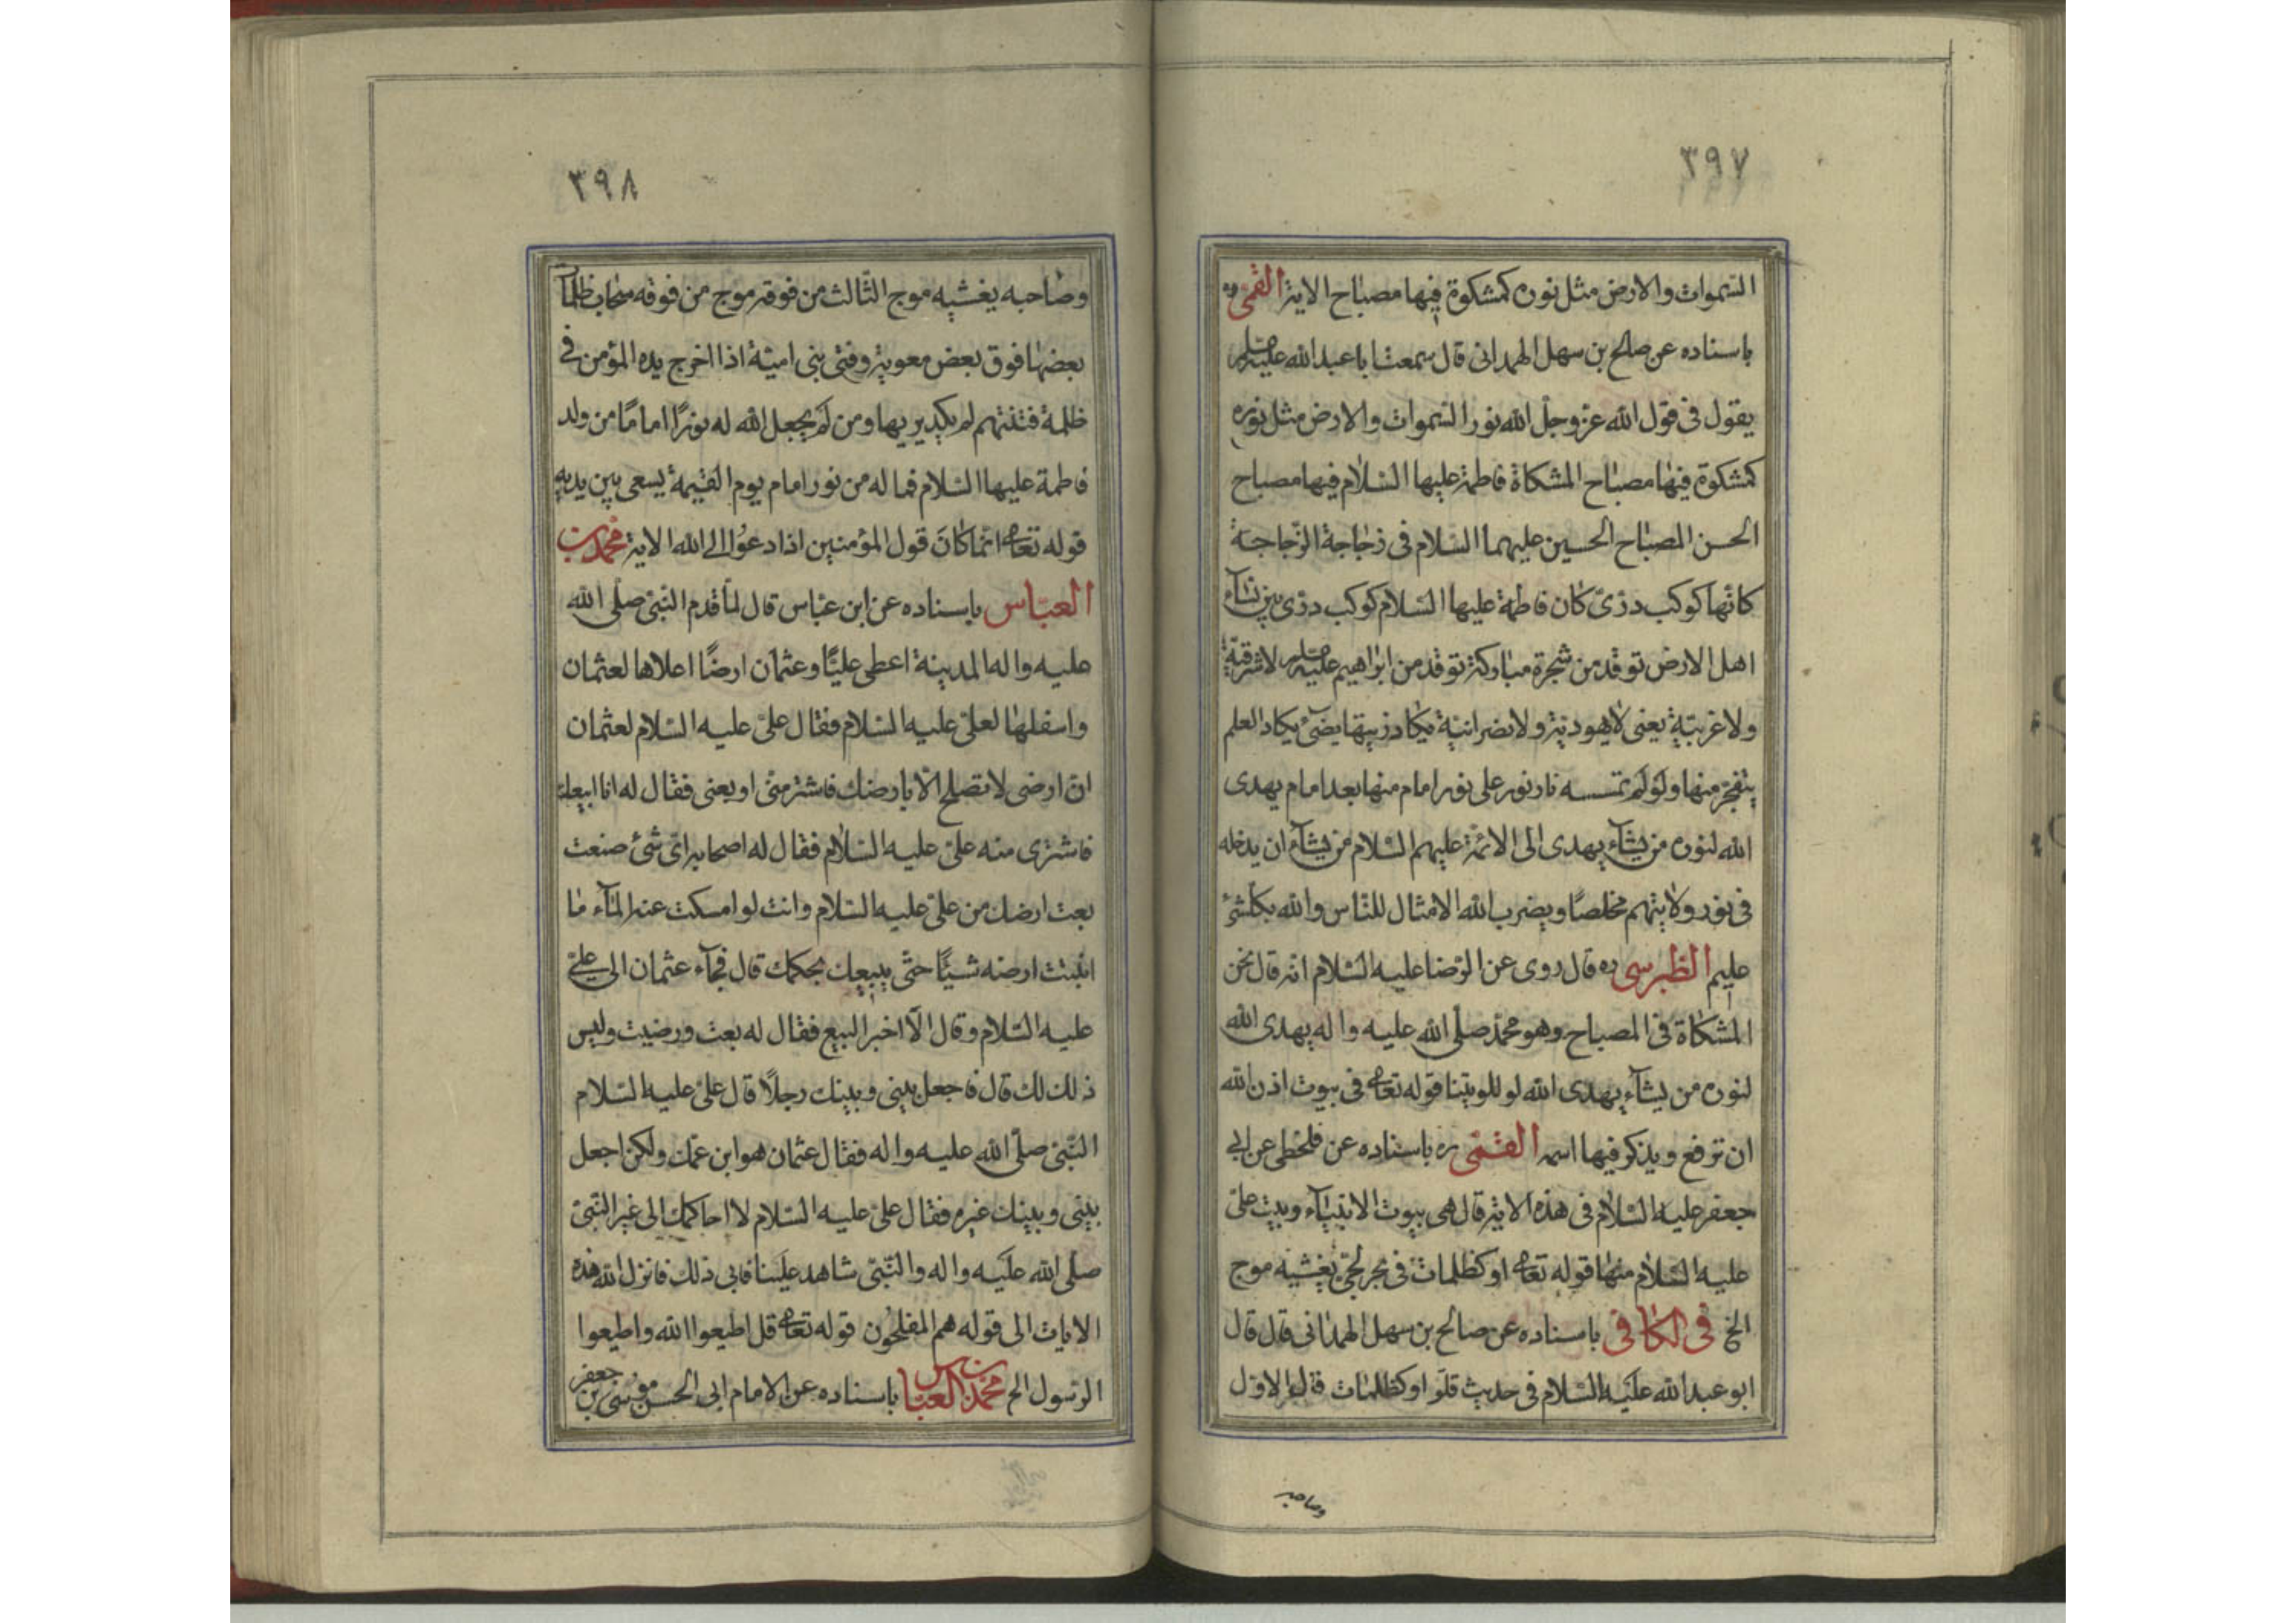 ٣٩٧
السّموات والارض مثل نوره كمشكوة فيها مصباح الاية القمّى ره
باسناده عن صالح بن سهل الهمدانى قال سمعت ابا عبد الله عليه السلم
يقول فى قول الله عزّ وجلّ الله نور السّموات والارض مثل نوره
كمشكوة فيها مصباح المشكاة فاطمة عليها السّلام فيها مصباح
الحسن المصباح الحسين عليهما السّلام فى زجاجة الزّجاجة
كانّها كوكب درّىّ كان فاطمة عليها السّلام كوكب درّى بين نسآء
اهل الارض توقد من شجرة مباركة توقد من ابراهيم عليه السلم لا شرقيّة
ولا غربيّة يعنى لا يهوديّة ولا نصرانيّة يكاد زيتها يضئ يكاد العلم
ينفجر منها ولو لم تمسسه نار نور على نور امام منها بعد امام يهدى
الله لنوره من يشآء يهدى الى الائمّة عليهم السّلام من يشآء ان يدخله
فى نور ولايتهم مخلصًا ويضرب الله الامثال للنّاس والله بكلّ شئ
عليم الطّبرسى ره قال روى عن الرّضا عليه السّلام انّه قال نحن
المشكاة فى المصباح وهو محمّد صلّى الله عليه واله يهدى الله
لنوره من يشآء يهدى الله لو للويتنا قوله تعالى فى بيوت اذن الله
ان ترفع ويذكر فيها اسمه القمّى ره باسناده عن ابى
جعفر عليه السّلام فى هذه الاية قال هى بيوت الانبيآء وبيت علىّ
عليه السّلام منها قوله تعالى او كظلمات فى بحر لجّىّ يغشيه موج
الخ فى الكافى باسناده عن صالح بن سهل الهمدانى قال قال
ابو عبد الله عليه السّلام فى حديث قلت او كظلمات قال الاوّل
وصاحبه
٣٩٨
وصاحبه يغشيه موج الثّالث من فوقه موج من فوقه سحاب ظلمآت
بعضها فوق بعض معوية وفتى بنى اميّة اذا اخرج يده المؤمن فى
ظلمة فتنتهم لم يكد يريها ومن لم يجعل الله له نورًا امامًا من ولد
فاطمة عليها السّلام فما له من نور امام يوم القيمة يسعى بين يديه
قوله تعالى انّما كان قول المؤمنين اذا دعُوا الى الله الاية محمّد بن
العبّاس باسناده عن ابن عبّاس قال لمّا قدم النّبىّ صلّى الله
عليه واله المدينة اعطى عليًّا وعثمان ارضًا اعلاها لعثمان
واسفلها لعلىّ عليه السّلام فقال علىّ عليه السّلام لعثمان
انّ ارضى لا تصلح الّا بارضك فاشتر منّى او بعنى فقال له انا ابيعك
فاشترى منه علىّ عليه السّلام فقال له اصحابه اىّ شئ صنعت
بعت ارضك من علىّ عليه السّلام وانت لو امسكت عنه المآء ما
انبتت ارضه شيئًا حتّى يبيعك بحكمك قال فجآء عثمان الى علىّ
عليه السّلام وقال الّا اخبر البيع فقال له بعت ورضيت وليس
ذلك لك قال فاجعل بينى وبينك رجلًا قال علىّ عليه السّلام
النّبىّ صلّى الله عليه واله فقال عثمان هو ابن عمّك ولكن اجعل
بينى وبينك غيره فقال علىّ عليه السّلام لا احاكمك الى غير النّبىّ
صلّى الله عليه واله والنّبىّ شاهد علينا فابى ذلك فانزل الله هذه
الايات الى قوله هم المفلحُون قوله تعالى قل اطيعوا الله واطيعوا
الرّسول الخ محمّد بن العبّاس باسناده عن الامام ابى الحسن موسى بن جعفر